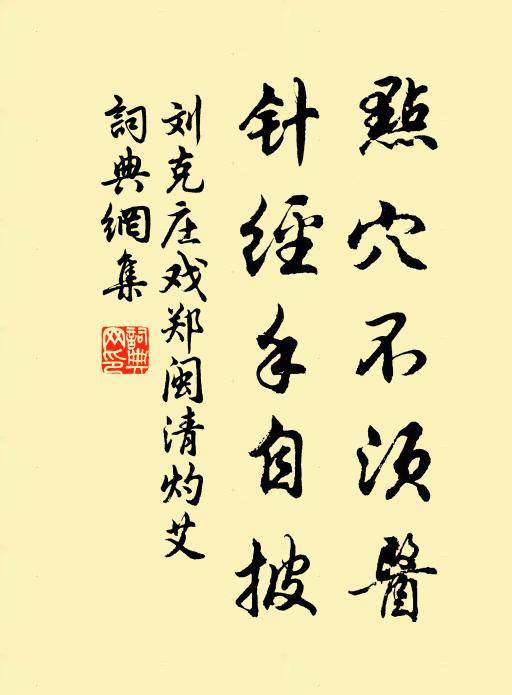 點穴不須醫
针經手自披
刘克庄戏郑闽清灼艾
詞典網集
詞典網印